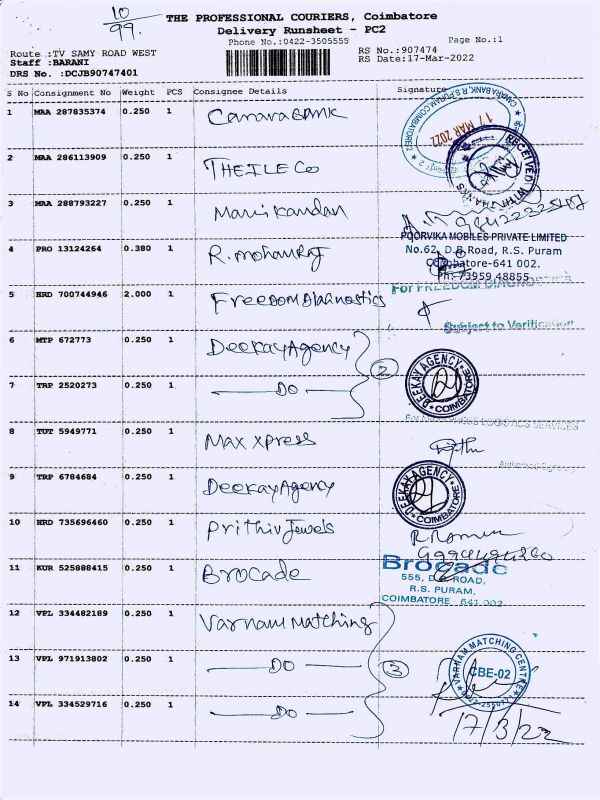 10
99.
THE PROFESSIONAL COURIERS, Coimbatore
Delivery Runsheet - PC2
Phone No.:0422-3505555
Page No.:1
Route :TV SAMY ROAD WEST
RS No.:907474
Staff :BARANI
RS Date:17-Mar-2022
DRS No. :DCJB90747401
S No Consignment No Weight PCS Consignee Details Signature
1 MAA 287835374 0.250 1 Canara BANK
CANARA BANK, R.S. PURAM, COIMBATORE-2
17 MAR 2022
RECEIVED WITH THANKS
2 MAA 286113909 0.250 1 THEILE Co
3 MAA 288793227 0.250 1 Manikandan
4 PRO 13124264 0.380 1 R. mohanRaj
POORVIKA MOBILES PRIVATE LIMITED
No.62, D.B.Road, R.S. Puram
Coimbatore-641 002.
Ph: 73959 48855
5 HRD 700744946 2.000 1 Freedom Diagnostics
For FREEDOM DIAGNOSTICA
Subject to Verification
6 MTP 672773 0.250 1 Deekay Agency
2
7 TRP 2520273 0.250 1 DO
DEEKAY AGENCY COIMBATORE
8 TUT 5949771 0.250 1 Max xpress
LOGISTICS SERVICES
9 TRP 6784684 0.250 1 Deekay Agency
DEEKAY AGENCY COIMBATORE
10 HRD 735696460 0.250 1 Prithiv Jewels
11 KUR 525888415 0.250 1 Brocade
Brocade
555, D.B. ROAD,
R.S. PURAM,
COIMBATORE - 641 002
12 VPL 334482189 0.250 1 Varnam Matching
13 VPL 971913802 0.250 1 DO
3
VARNAM MATCHING CENTRE
CBE-02
14 VPL 334529716 0.250 1 DO
17/3/22